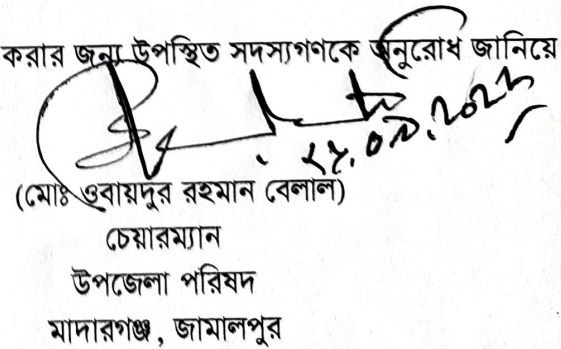 করার জন্য উপস্থিত সদস্যগণকে অনুরোধ জানিয়ে
(মোঃ ওবায়দুর রহমান বেলাল)
চেয়ারম্যান
উপজেলা পরিষদ
মাদারগঞ্জ, জামালপুর